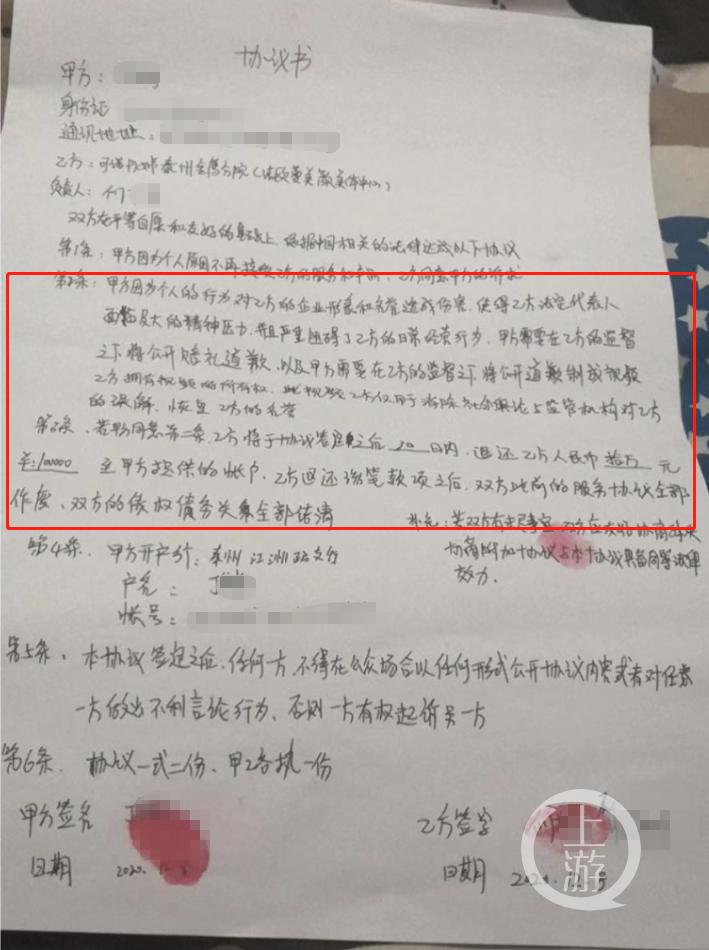 协议书
甲方：
身份证
通讯地址：
乙方：可诺丹婷泰州金鹰分院（法政曼美微美体中心）
负责人：何
双方在平等自愿和友好的基础上，依据中国相关的法律达成以下协议
第1条：甲方因为个人原因不再接受乙方的服务和产品，乙方同意甲方的诉求
第2条：甲方因为个人的行为对乙方的企业形象和名誉造成伤害，使得乙方法定代表人
面临极大的精神压力，并且严重阻碍了乙方的日常经营行为，甲方需要在乙方的监督
之下将公开赔礼道歉，以及甲方需要在乙方的监督之下将公开道歉制成视频
乙方拥有视频的所有权，此视频乙方仅用于消除社会舆论与监管机构对乙方
的误解，恢复乙方的名誉
第3条，若甲方同意第二条，乙方将于协议签定之后 20 日内，退还乙方人民币 拾万 元
¥:100000 至甲方提供的帐户，乙方退还该笔款项之后，双方此前的服务协议全部
作废、双方的债权债务关系全部结清
补充：若双方有未尽事宜，双方应友好协商解决
协商附加协议与本协议具备同等法律
效力.
第4条、甲方开户行：泰州 江洲路支行
户名：丁
帐号：
第5条、本协议签定之后，任何一方，不得在公众场合以任何形式公开协议内容或者对任意
一方做出不利言论行为、否则一方有权起诉另一方
第6条、协议一式二份、甲乙各执一份
甲方签名 丁
乙方签字
日期 2020.12.
日期 2020.12.
上游